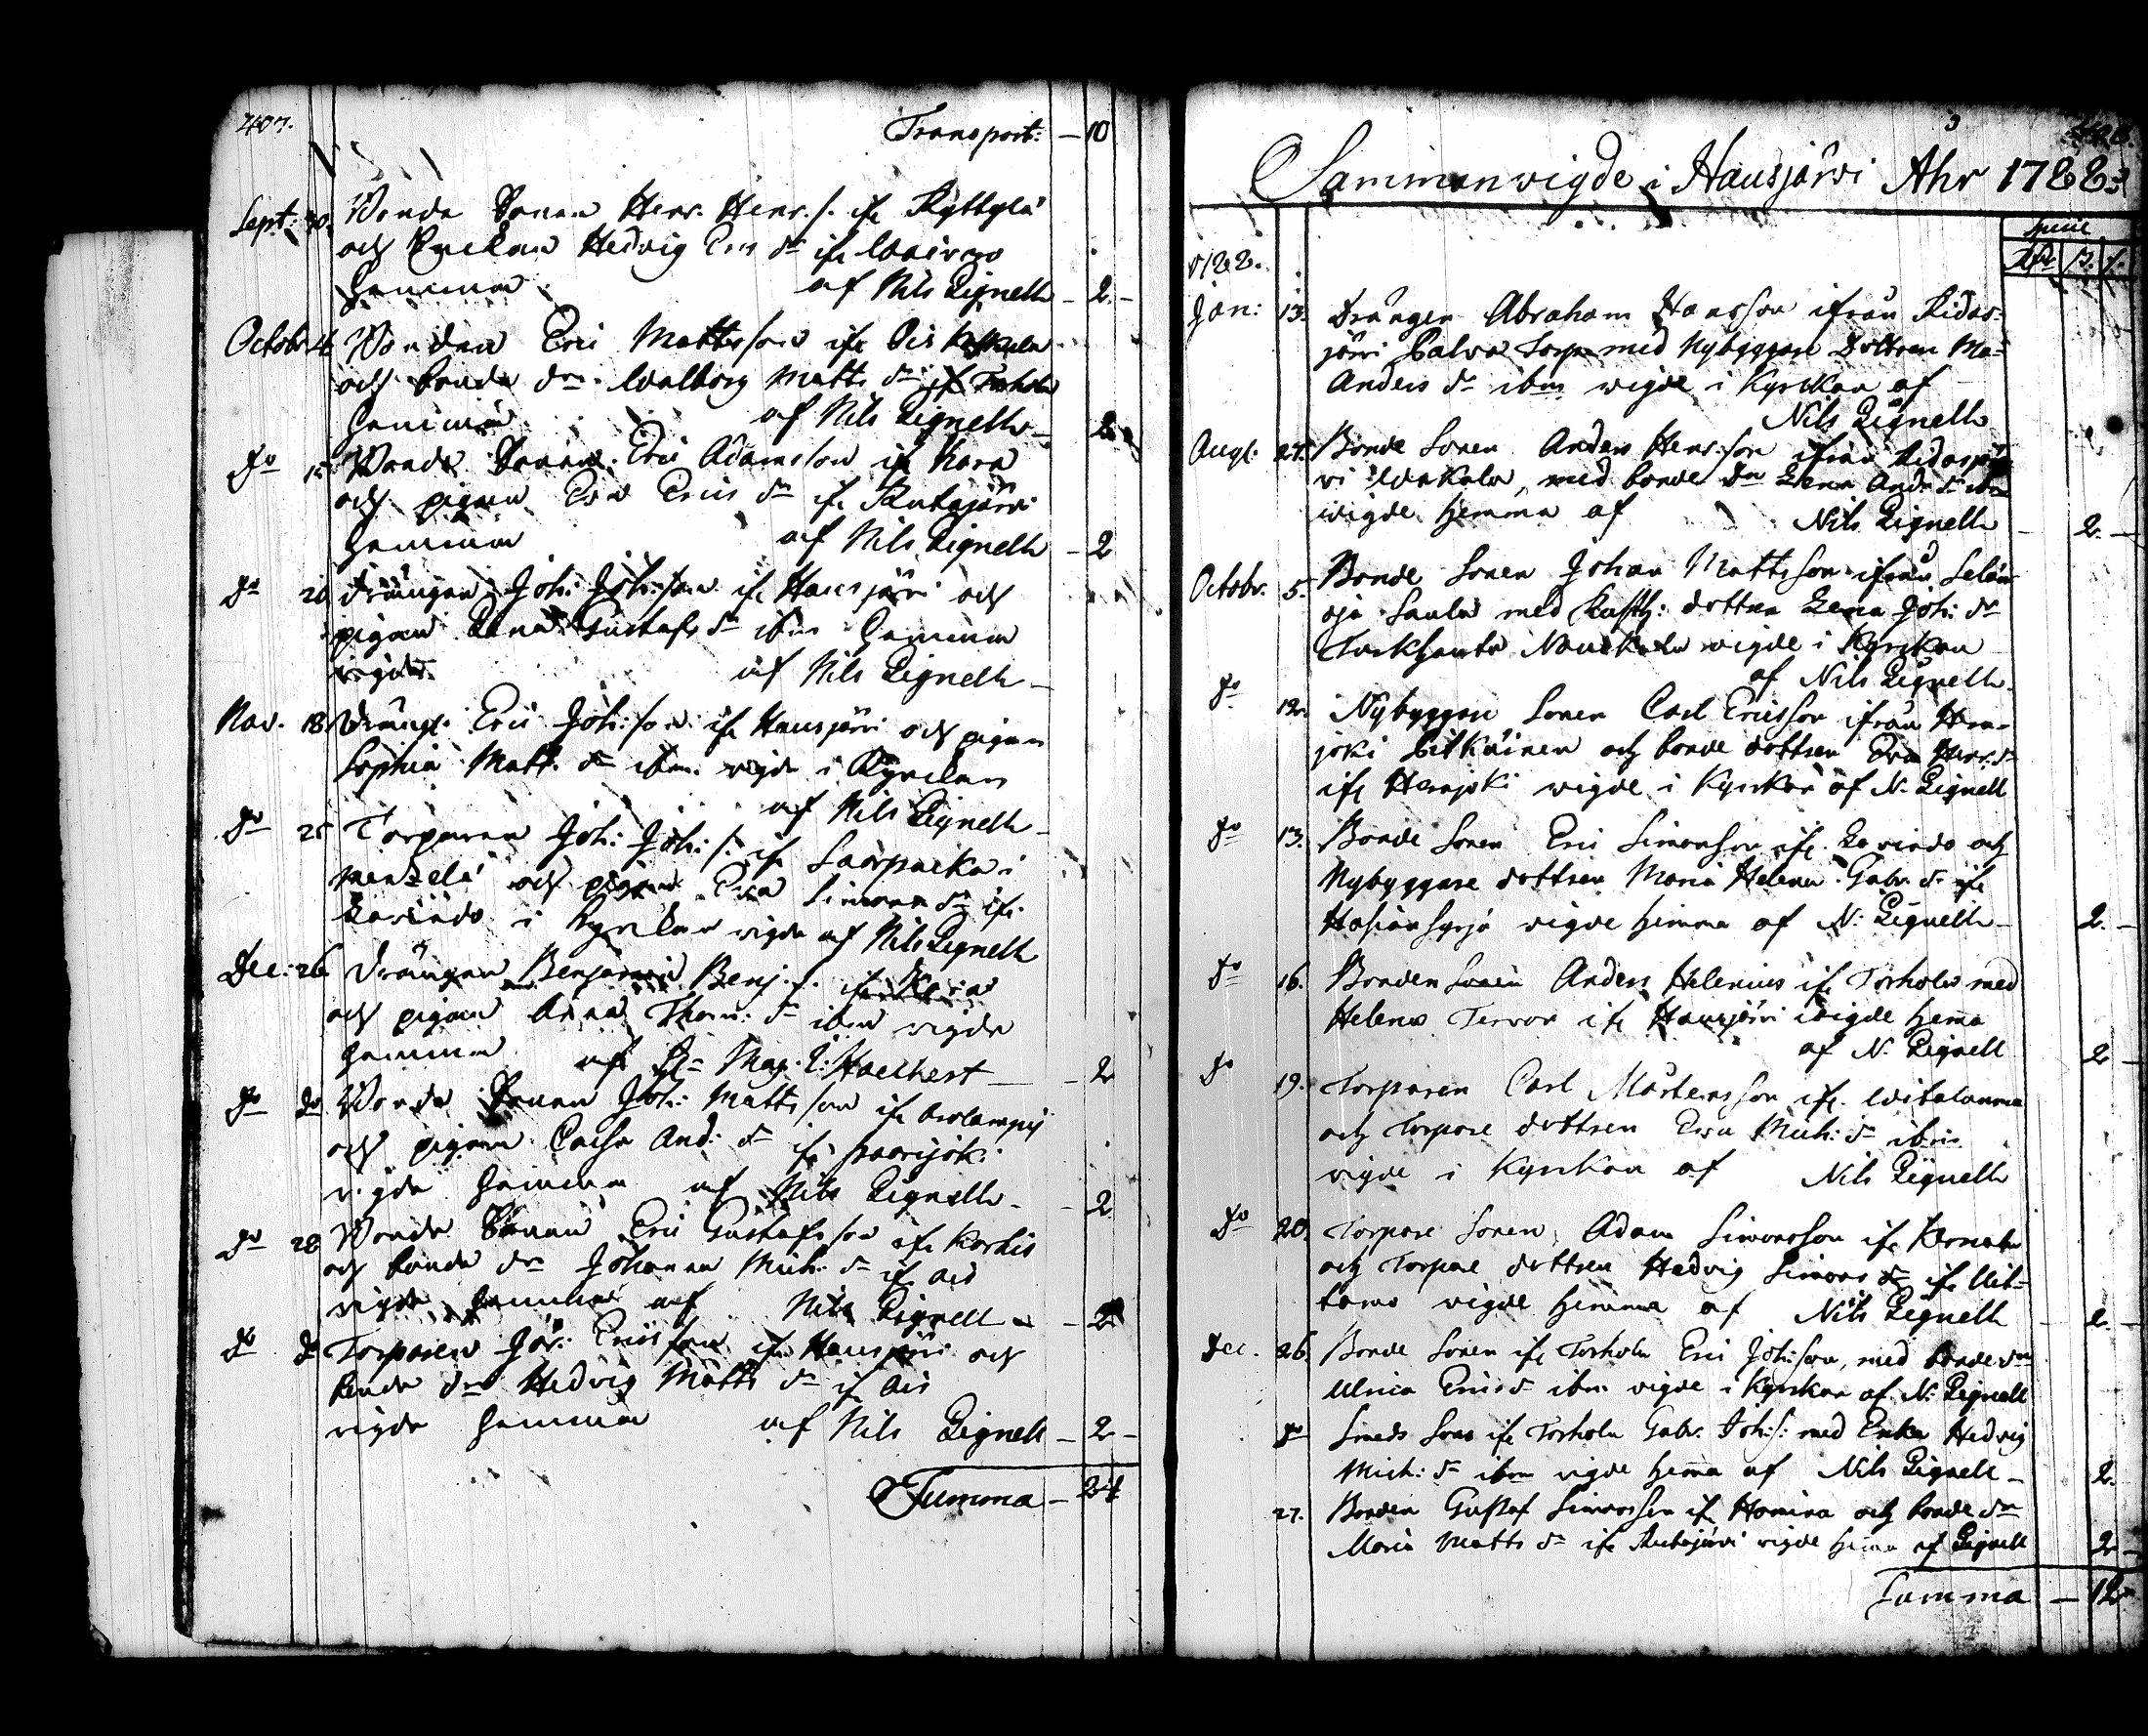 407.
Transport: — 10
Sept: 30. Bonde Sonen Henr. Henr. s. ifr Ryttylä
och Enckan Hedvig Eric dr ifr
hemma af Nils Lignell — 2. —
Octobr 4 Bonden Eric Mattsson ifr Ois
och bonde dr. Walborg Matts dr ifr Torhola
hemma af Nils Lignell — 2
Do 15. Bonde Sonen Eric Adamsson ifr Kara
och pigan Eva Erics dr ifr Kutajärvi
hemma af Nils Lignell — 2
Do 26 Drängen Joh: Joh: son ifr Hausjärvi och
pigan Anna Gustafs dr ibm hemma
vigde af Nils Lignell —
Nov. 18. Dräng: Eric Joh: son ifr Hausjärvi och pigan
Sophia Matt. dr ibm. vigde i Kyrckan
af Nils Lignell —
Do 25 Torparen Joh: Joh: s: ifr
och pigan Eva Simons dr ifr
Lavindo i Kyrckan vigde af Nils Lignell
Dec: 26 Drängen Benjamin Benj. s. ifr
och pigan Anna Thom: dr ibm vigde
hemma af Hr Mag. Haechert — 2
Do Do Bonde Sonen Joh: Mattsson ifr Arolampij
och pigan Caisa And: dr ifr
vigde hemma af Nils Lignell — 2
Do 28 Bonde Sonen Eric Gustafsson ifr Karhis
och bonde dr Johanna Mich: dr ifr Ois
vigde hemma af Nils Lignell — 2
Do Do Torparen Ericsson ifr Hausjärvi och
bonde dr Hedvig Matts dr ifr Ois
vigde hemma af Nils Lignell — 2 —
Summa — 24
408.
Sammanvigde i Hausjärvi Åhr 1788.
Specie
Rdr ß. r.
1788.
Jan: 13. Drängen Abraham Hansson ifrån Ridas-
järvi Salva Torp med Nybyggare Dottren Ma:
Anders dr ibm vigde i Kyrckan af
Nils Lignell
Augt. 27. Bonde Sonen Anders Henr: son ifrån Ridasjär
vi, med bonde dr Lena And: dr ibm
vigde hemma af Nils Lignell — 2. —
Octobr. 5. Bonde Sonen Johan Mattsson ifrån Selän
oja med Rusth: dottren Lena Joh: dr
vigde i Kyrckan
af Nils Lignell.
Do 12. Nybyggare Sonen Carl Ericsson ifrån Hera-
joki Pitkäinen och bonde dottren Eva Henr: dr
ifr Herajoki vigde i Kyrckan af N. Lignell
Do 13. Bonde Sonen Eric Simonsson ifr. Lavindo och
Nybyggare dottren Maria Helena Gabr. dr ifr
vigde hemma af N: Lignell — 2. —
Do 16. Bonden Sonen Anders Helenius ifr Torhola med
Helena Tervon ifr Hausjärvi vigde hemma
af N. Lignell 2 —
Do 19. Torparen Carl Mårtensson ifr. Vitalamma
och Torpare dottren Eva Mich: dr ibm
vigde i Kyrckan af Nils Lignell
Do 20. Torpare Sonen Adam Simonsson ifr Kernala
och Torpare dottren Hedvig Simons dr ifr Uit-
tamo vigde hemma af Nils Lignell — 2. —
Dec. 26. Bonde Sonen ifr Torhola Eric Joh: son, med bonde dr
Ulrica Erics dr ibm vigde i Kyrckan af N. Lignell
Do Smeds Son ifr Torhola Gabr. Joh: s: med Enkan Hedvig
Mich: dr ibm vigde hemma af Nils Lignell — 2.
27. Bonden Gustaf Simonsson ifr Hamina och bonde dr
Maria Matts dr ifr Kutajärvi vigde hemma af Lignell 2 —
Summa — 12